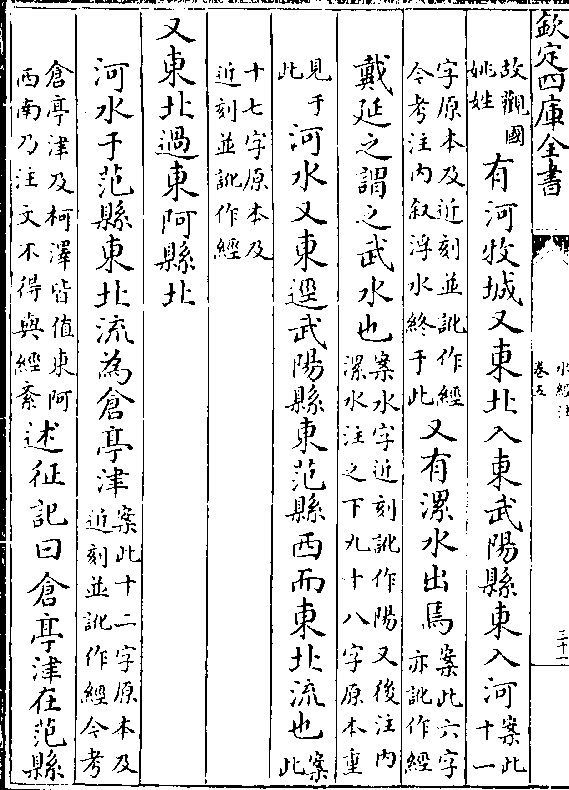 欽定四庫全書
水經注
卷五
三十一
故觀國
姚姓
有河牧城又東北入東武陽縣東入河
案此
十一
字原本及近刻並訛作經
今考注内叙浮水終于此
又有漯水出焉
案此六字
亦訛作經
戴延之謂之武水也
案水字近刻訛作陽又後注内
漯水注之下九十八字原本重
見于
此
河水又東逕武陽縣東范縣西而東北流也
案
此
十七字原本及
近刻並訛作經
又東北過東阿縣北
河水于范縣東北流為倉亭津
案此十二字原本及
近刻並訛作經今考
倉亭津及柯澤皆值東阿
西南乃注文不得與經紊
述征記曰倉亭津在范縣